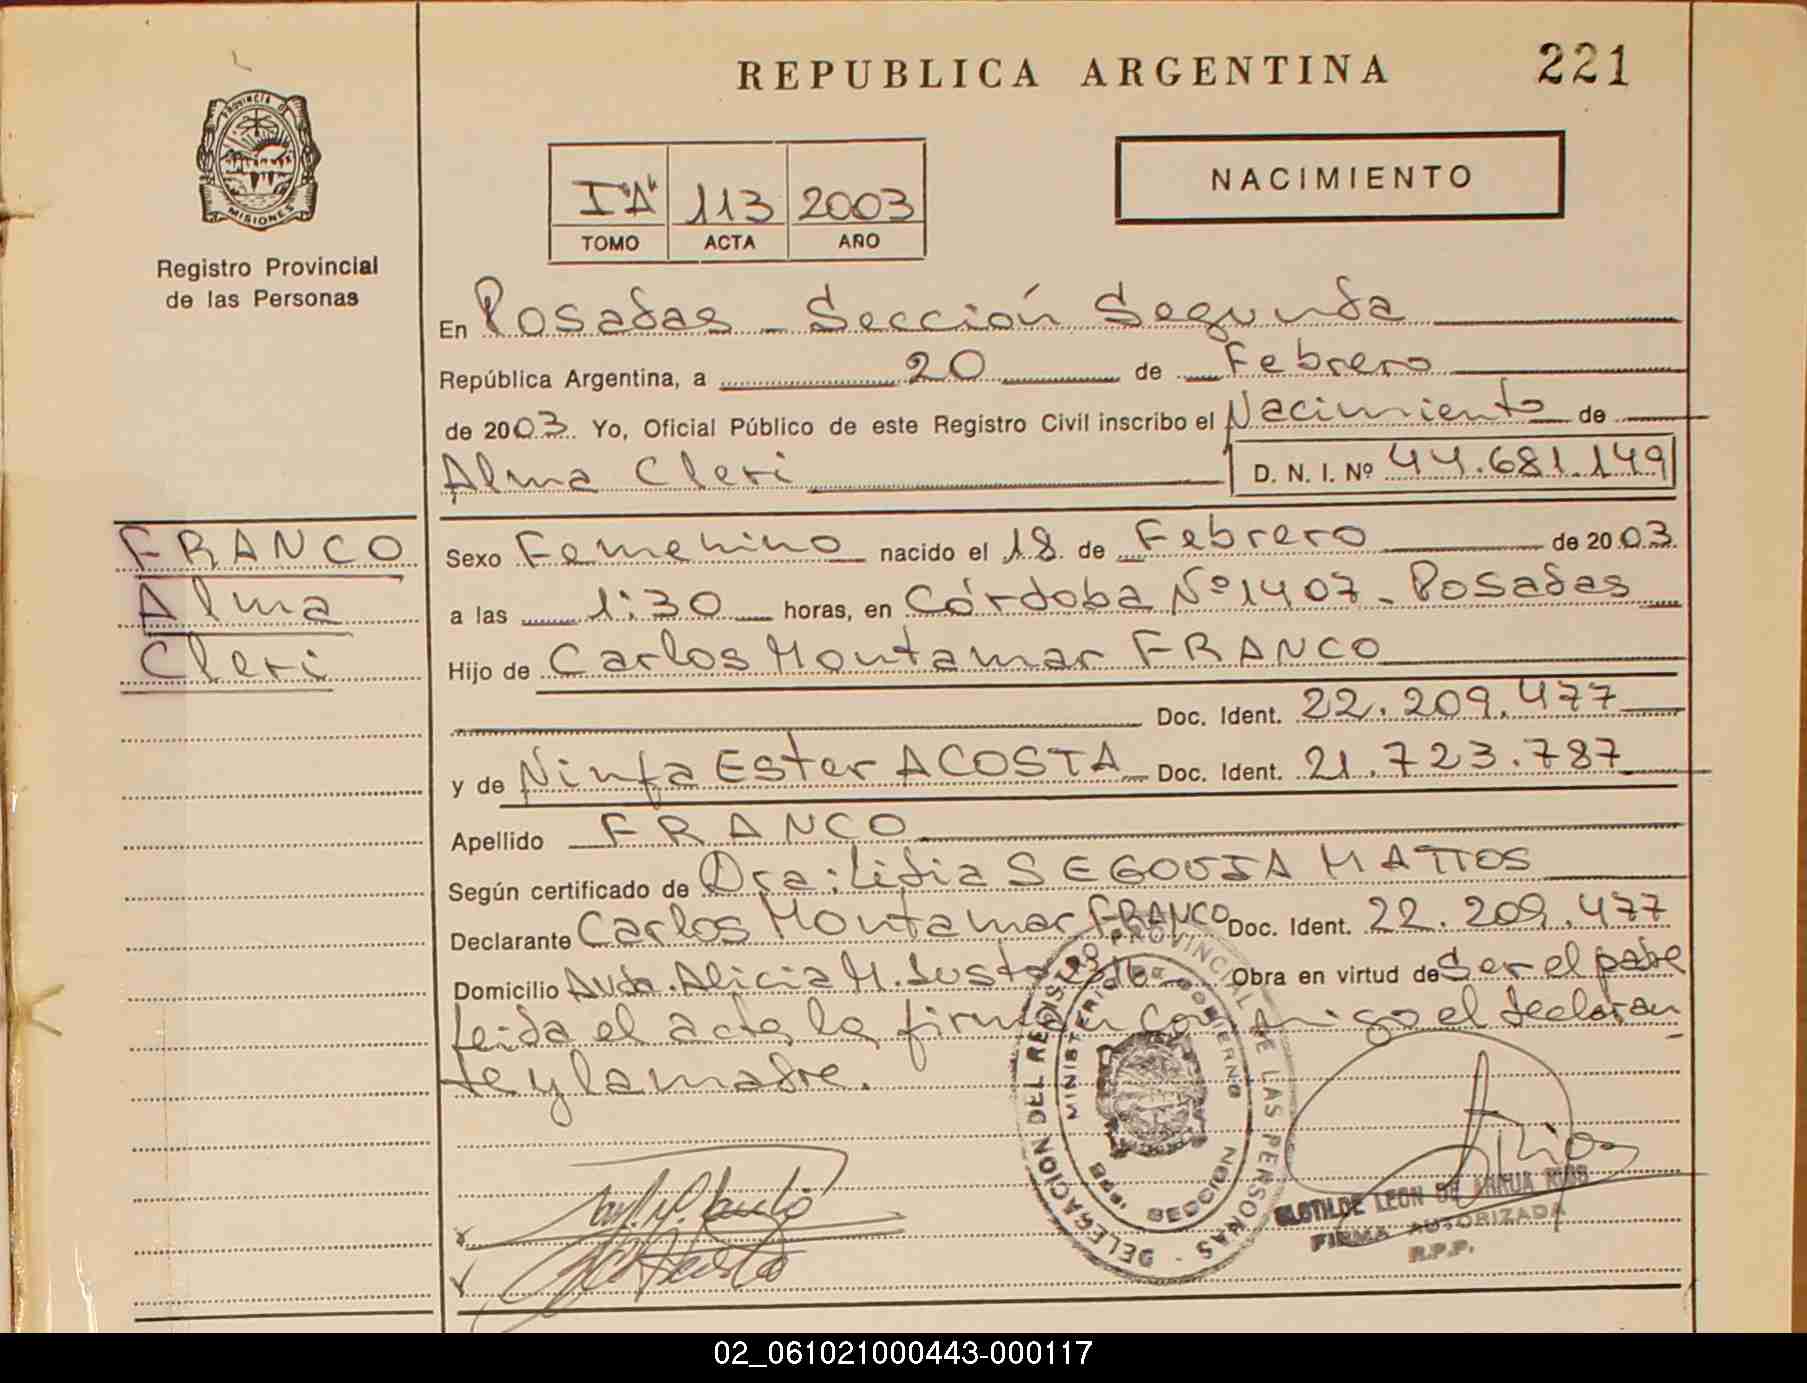 REPUBLICA ARGENTINA
221
PROVINCIA DE
MISIONES
Registro Provincial
de las Personas
I "A" 113 2003
TOMO ACTA AÑO
NACIMIENTO
En Posadas - Sección Segunda
República Argentina, a 20 de Febrero
de 2003. Yo, Oficial Público de este Registro Civil inscribo el Nacimiento de
Alma Cleri
D. N. I. Nº 44.681.149
FRANCO
Alma
Cleri
Sexo Femenino nacido el 18 de Febrero de 2003.
a las 1:30 horas, en Córdoba Nº 1407 - Posadas
Hijo de Carlos Montamar FRANCO
Doc. Ident. 22.209.477
y de Ninfa Ester ACOSTA Doc. Ident. 21.723.787
Apellido FRANCO
Según certificado de Dra: Lidia SEGOVIA MATTOS
Declarante Carlos Montamar FRANCO Doc. Ident. 22.209.477
Domicilio Avda. Alicia M. Obra en virtud de Ser el padre
leida el acta la firman conmigo el declaran
te y la madre.
DELEGACION DEL REGISTRO PROVINCIAL DE LAS PERSONAS
MINISTERIO DE GOBIERNO
SECCION
CLOTILDE LEON DE RIOS
FIRMA AUTORIZADA
R.P.P.
02_061021000443-000117